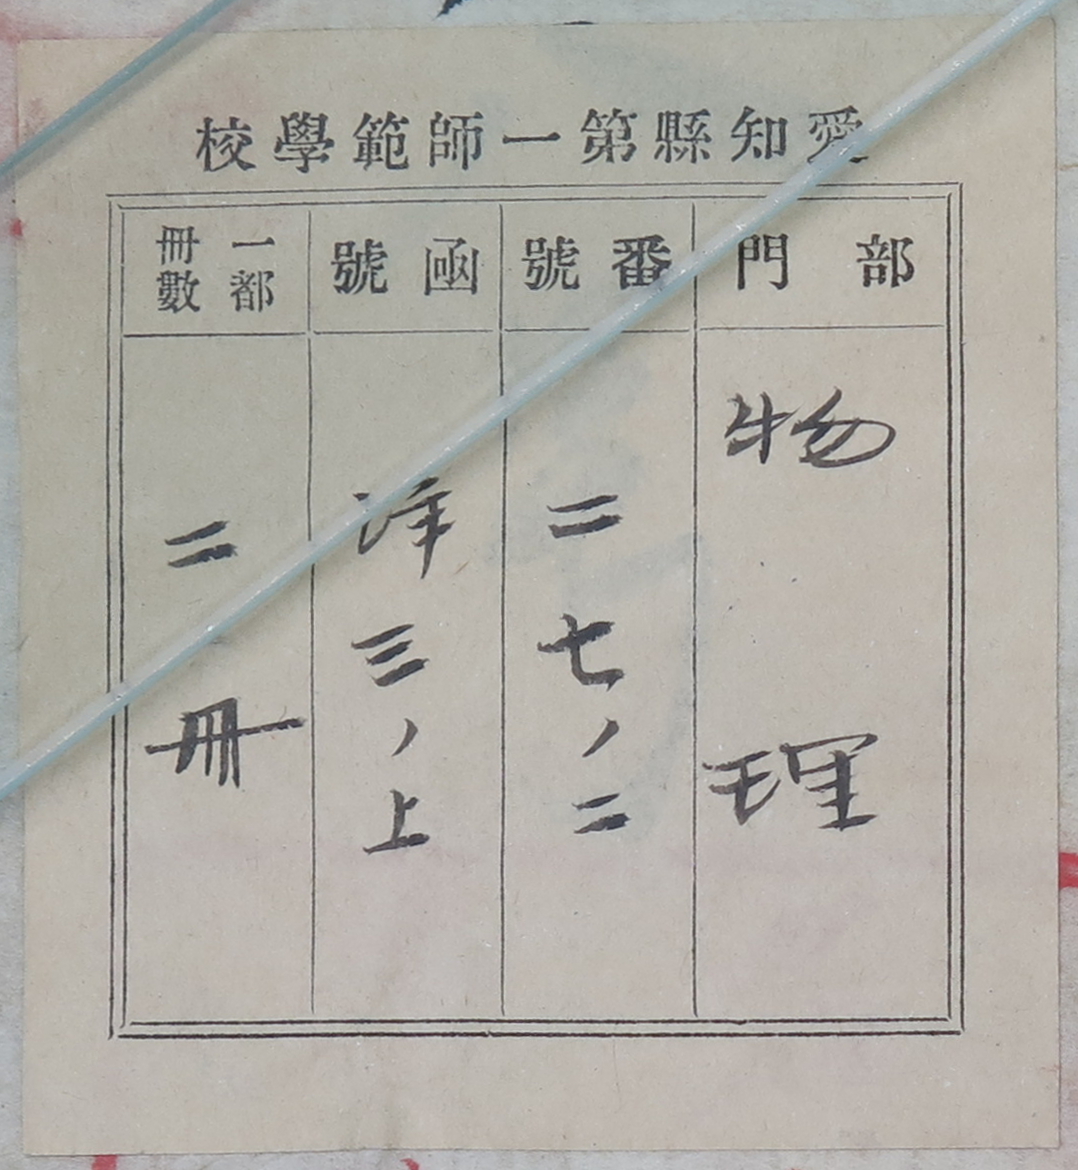 愛知縣第一師範學校
部門
物理
番號
二七ノ二
凾號
洋三ノ上
一部
冊數
二冊